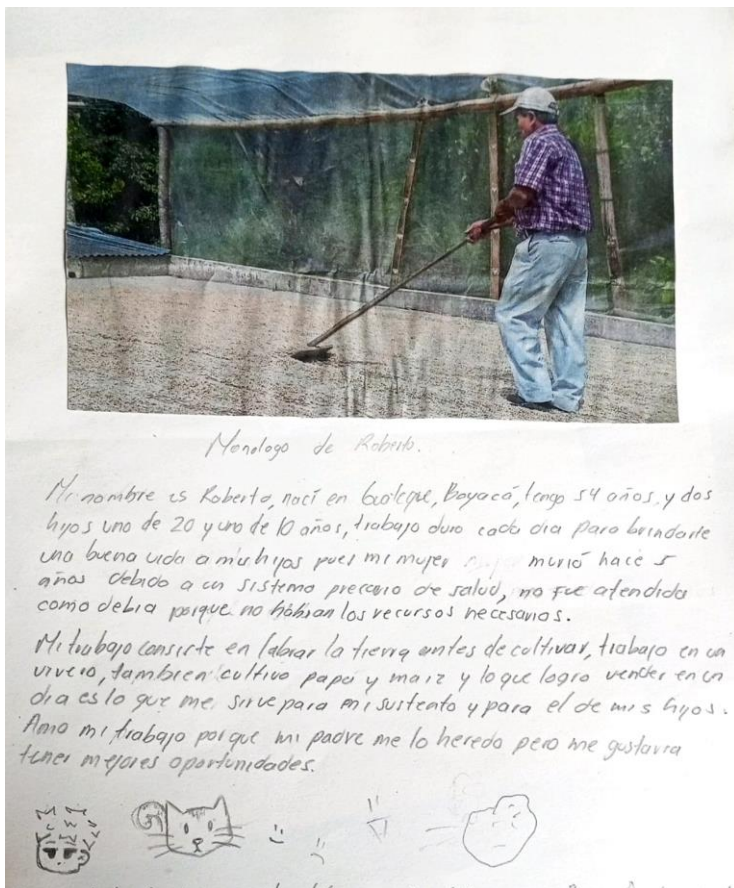 Monologo de Roberto.
Mi nombre es Roberto, nací en Guateque, Boyacá, tengo 54 años, y dos
hijos uno de 20 y uno de 10 años, trabajo duro cada dia para brindarle
una buena vida a mis hijos pues mi mujer murió hace 5
años debido a un sistema precario de salud, no fue atendida
como debia porque no habian los recursos necesarios.
Mi trabajo consirte en labrar la tierra antes de cultivar, trabajo en un
vivero, tambien cultivo papa y maiz y lo que logro vender en un
dia es lo que me sirve para mi sustento y para el de mis hijos.
Amo mi trabajo porque mi padre me lo heredo pero me gustaria
tener mejores oportunidades.